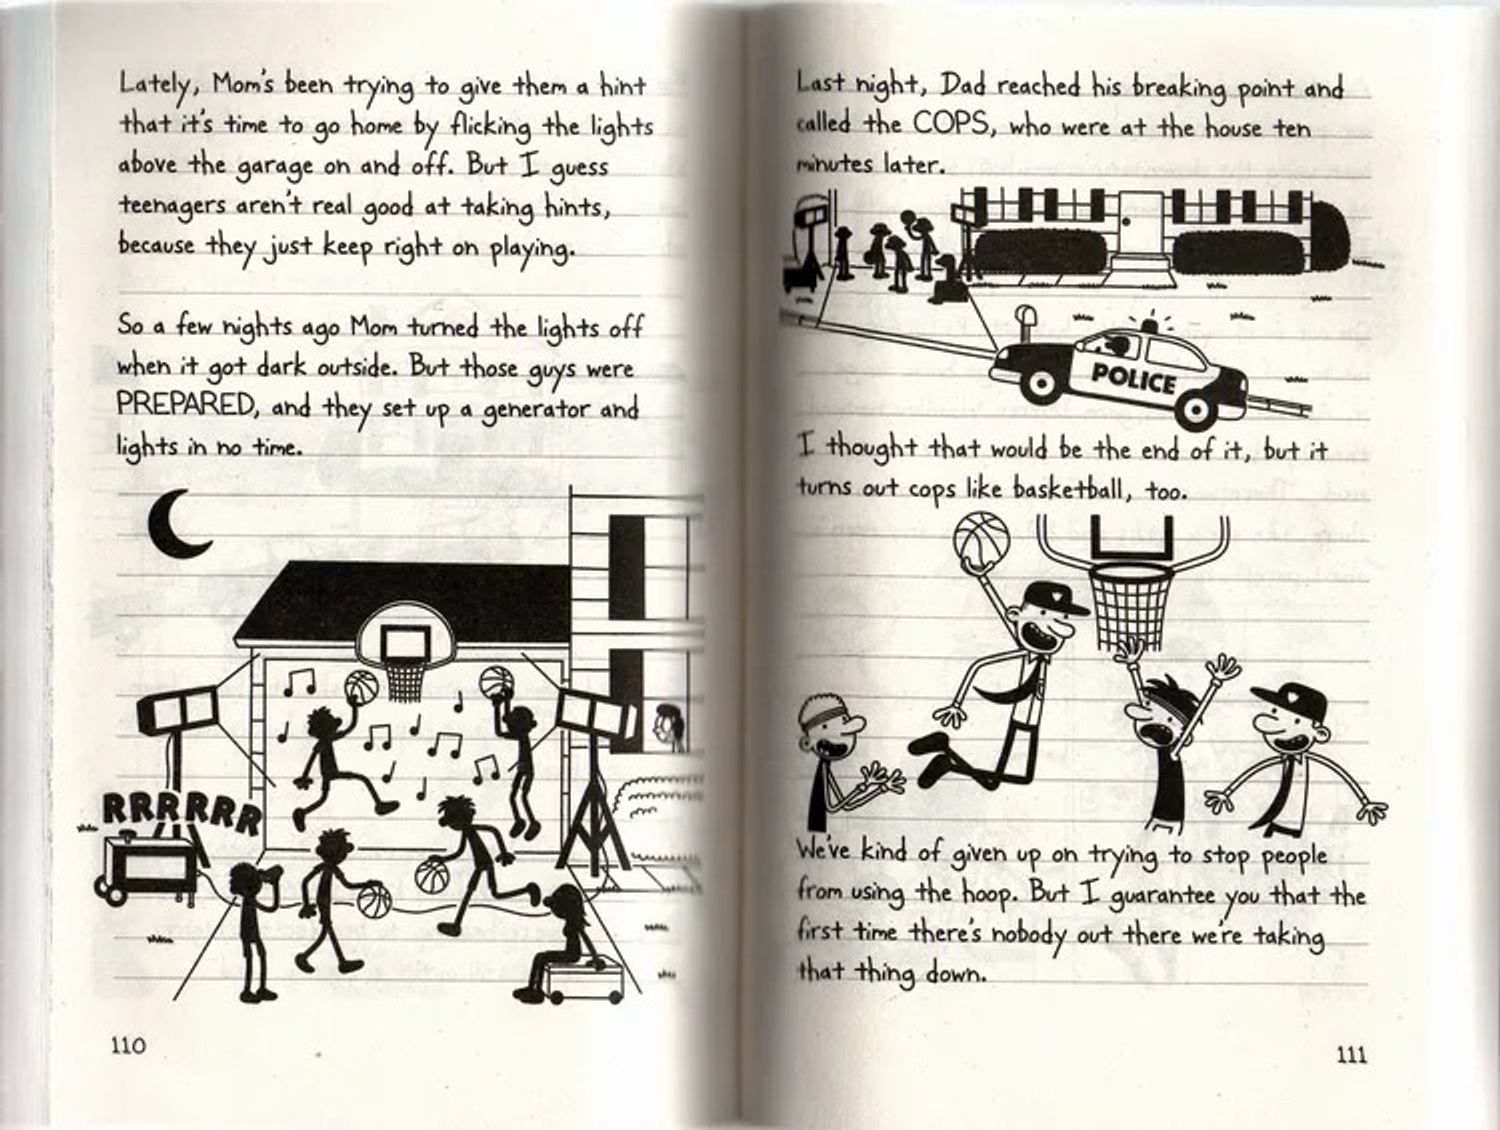 Lately, Mom's been trying to give them a hint
that it's time to go home by flicking the lights
above the garage on and off. But I guess
teenagers aren't real good at taking hints,
because they just keep right on playing.
So a few nights ago Mom turned the lights off
when it got dark outside. But those guys were
PREPARED, and they set up a generator and
lights in no time.
RRRRRR
110
Last night, Dad reached his breaking point and
called the COPS, who were at the house ten
minutes later.
POLICE
I thought that would be the end of it, but it
turns out cops like basketball, too.
We've kind of given up on trying to stop people
from using the hoop. But I guarantee you that the
first time there's nobody out there we're taking
that thing down.
111